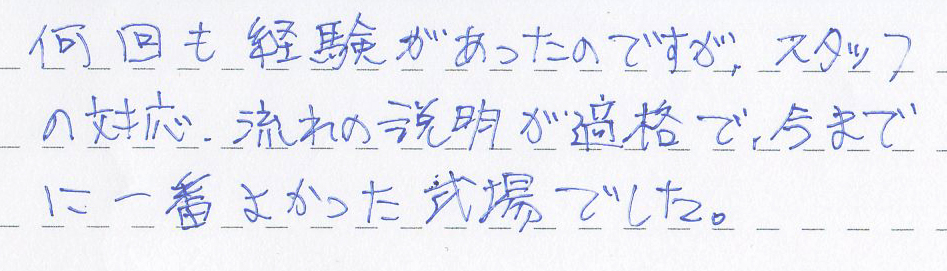 何回も経験があったのですが、スタッフ
の対応、流れの説明が適格で、今まで
に一番よかった式場でした。